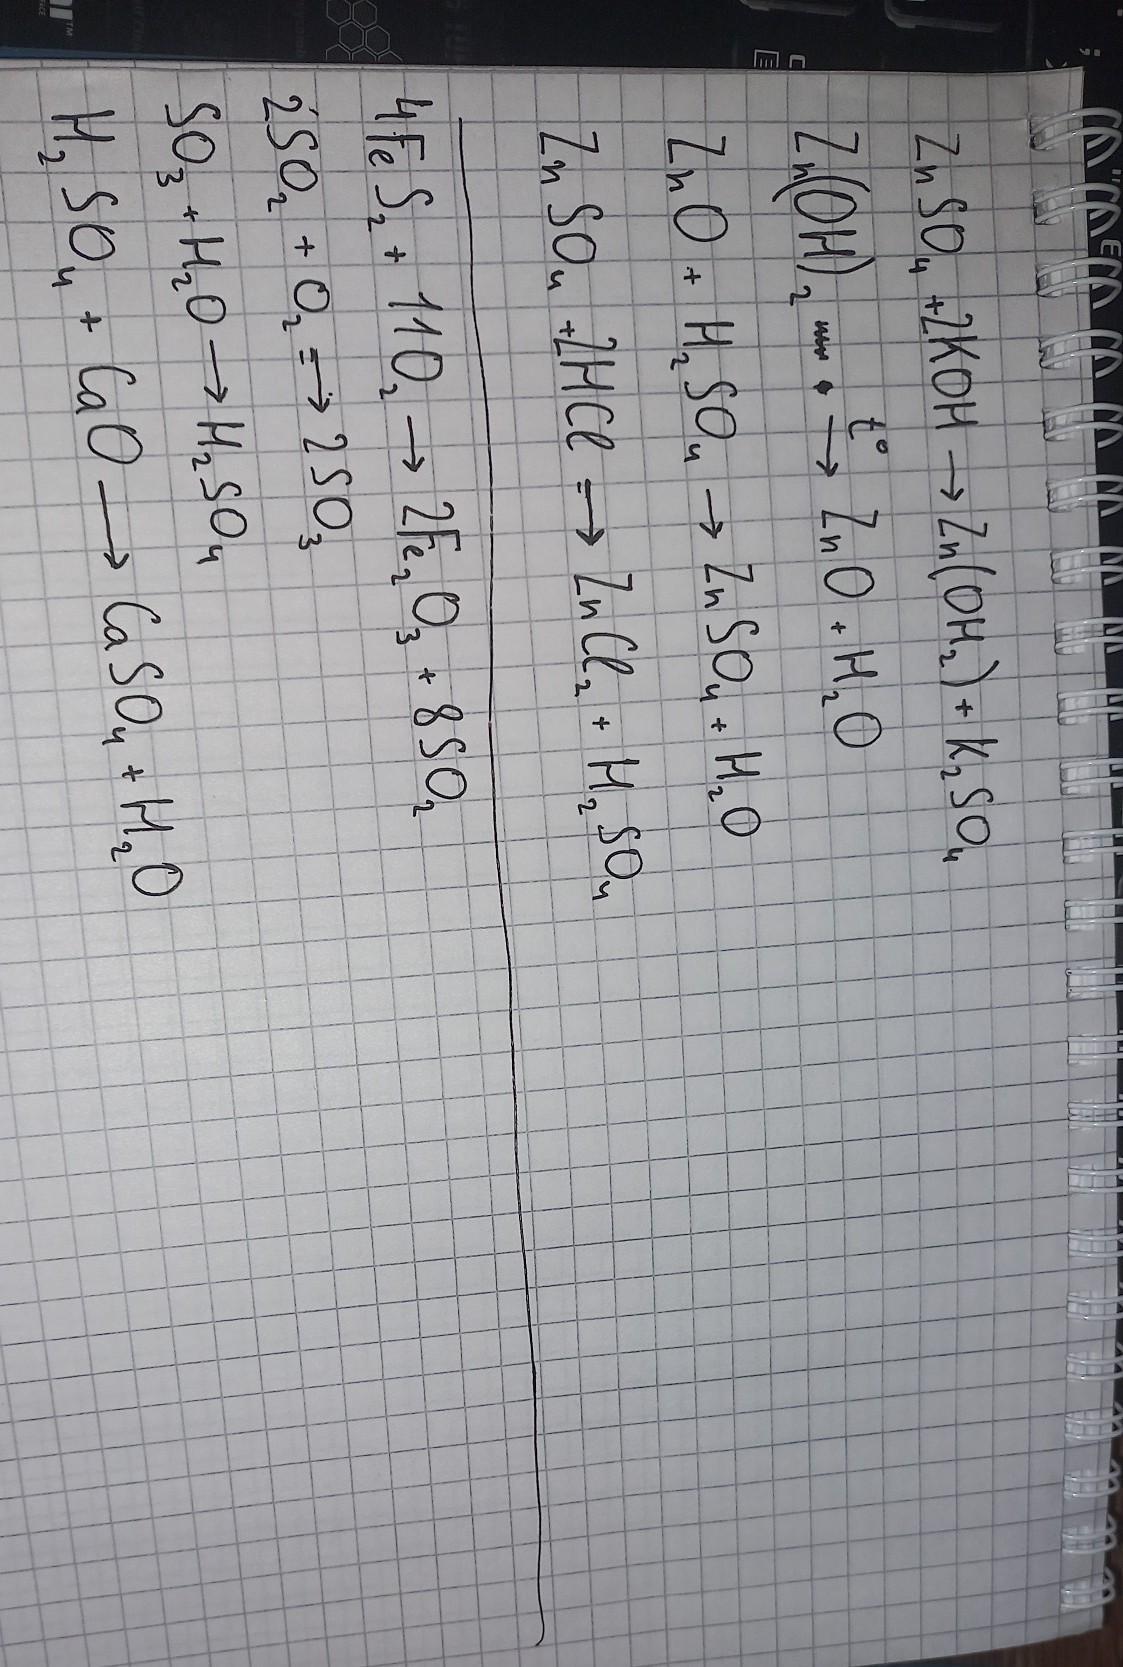 ZnSO₄ + 2KOH → Zn(OH₂) + K₂SO₄
Zn(OH)₂ t° → ZnO + H₂O
ZnO + H₂SO₄ → ZnSO₄ + H₂O
ZnSO₄ + 2HCl → ZnCl₂ + H₂SO₄
4FeS₂ + 11O₂ → 2Fe₂O₃ + 8SO₂
2SO₂ + O₂ → 2SO₃
SO₃ + H₂O → H₂SO₄
H₂SO₄ + CaO → CaSO₄ + H₂O